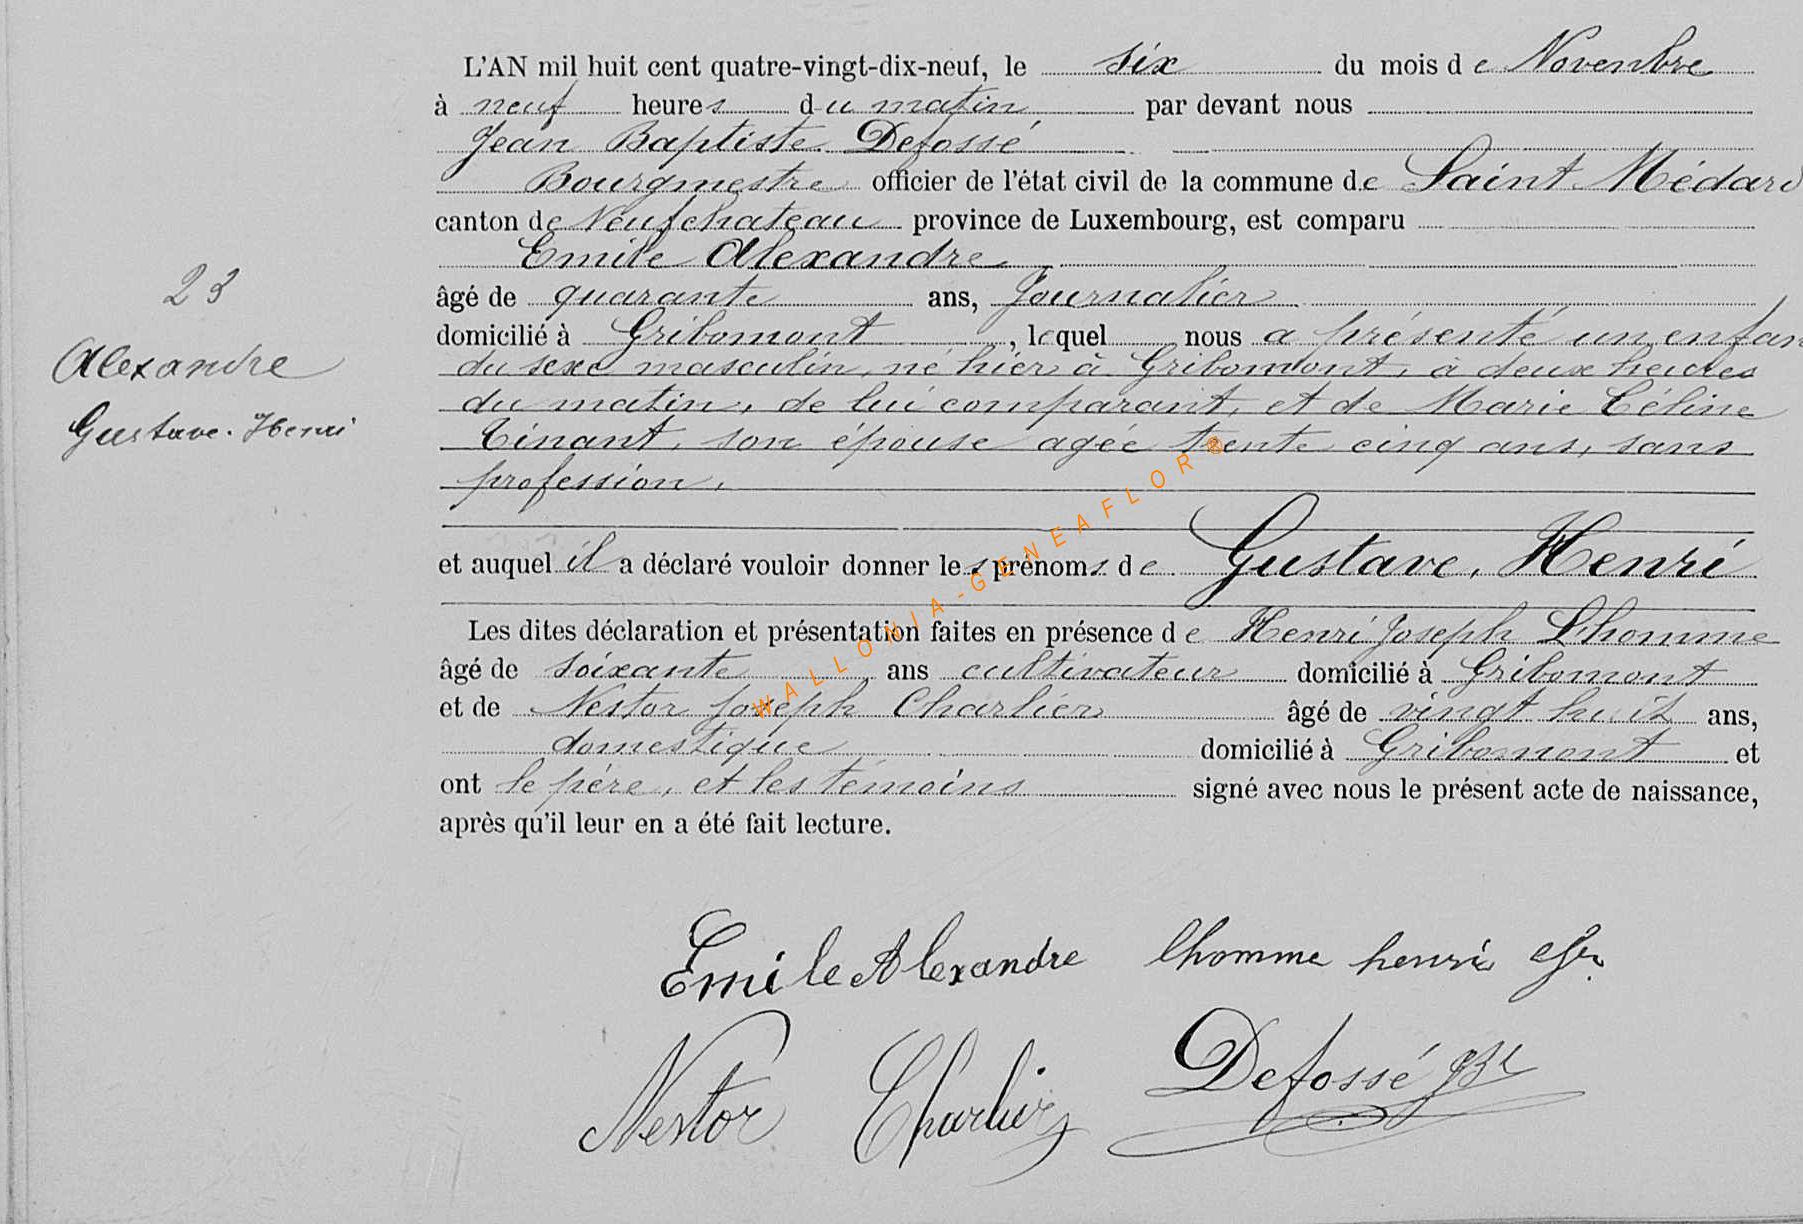 L'AN mil huit cent quatre-vingt-dix-neuf, le six du mois de Novembre
à neuf heures du matin par devant nous
Jean Baptiste Defossé
Bourgmestre officier de l'état civil de la commune de Saint Médard
canton de Neufchateau province de Luxembourg, est comparu
Emile Alexandre
23
âgé de quarante ans, Journalier
domicilié à Gribomont, lequel nous a présenté un enfan
Alexandre
du sexe masculin, né hier à Gribomont, à deux heures
du matin, de lui comparant, et de Marie Céline
Gustave. Henri
Tinant, son épouse agée trente cinq ans, sans
profession,
et auquel il a déclaré vouloir donner les prénoms de Gustave, Henri
Les dites déclaration et présentation faites en présence de Henri Joseph Lhomme
âgé de soixante ans cultivateur domicilié à Gribomont
et de Nestor Joseph Charlier âgé de vingt huit ans,
domestique domicilié à Gribomont et
ont le père, et les témoins signé avec nous le présent acte de naissance,
après qu'il leur en a été fait lecture.
WALLONIA-GENEAFLOR®
Emile Alexandre lhomme henri
Nestor Charlier Defossé JBt